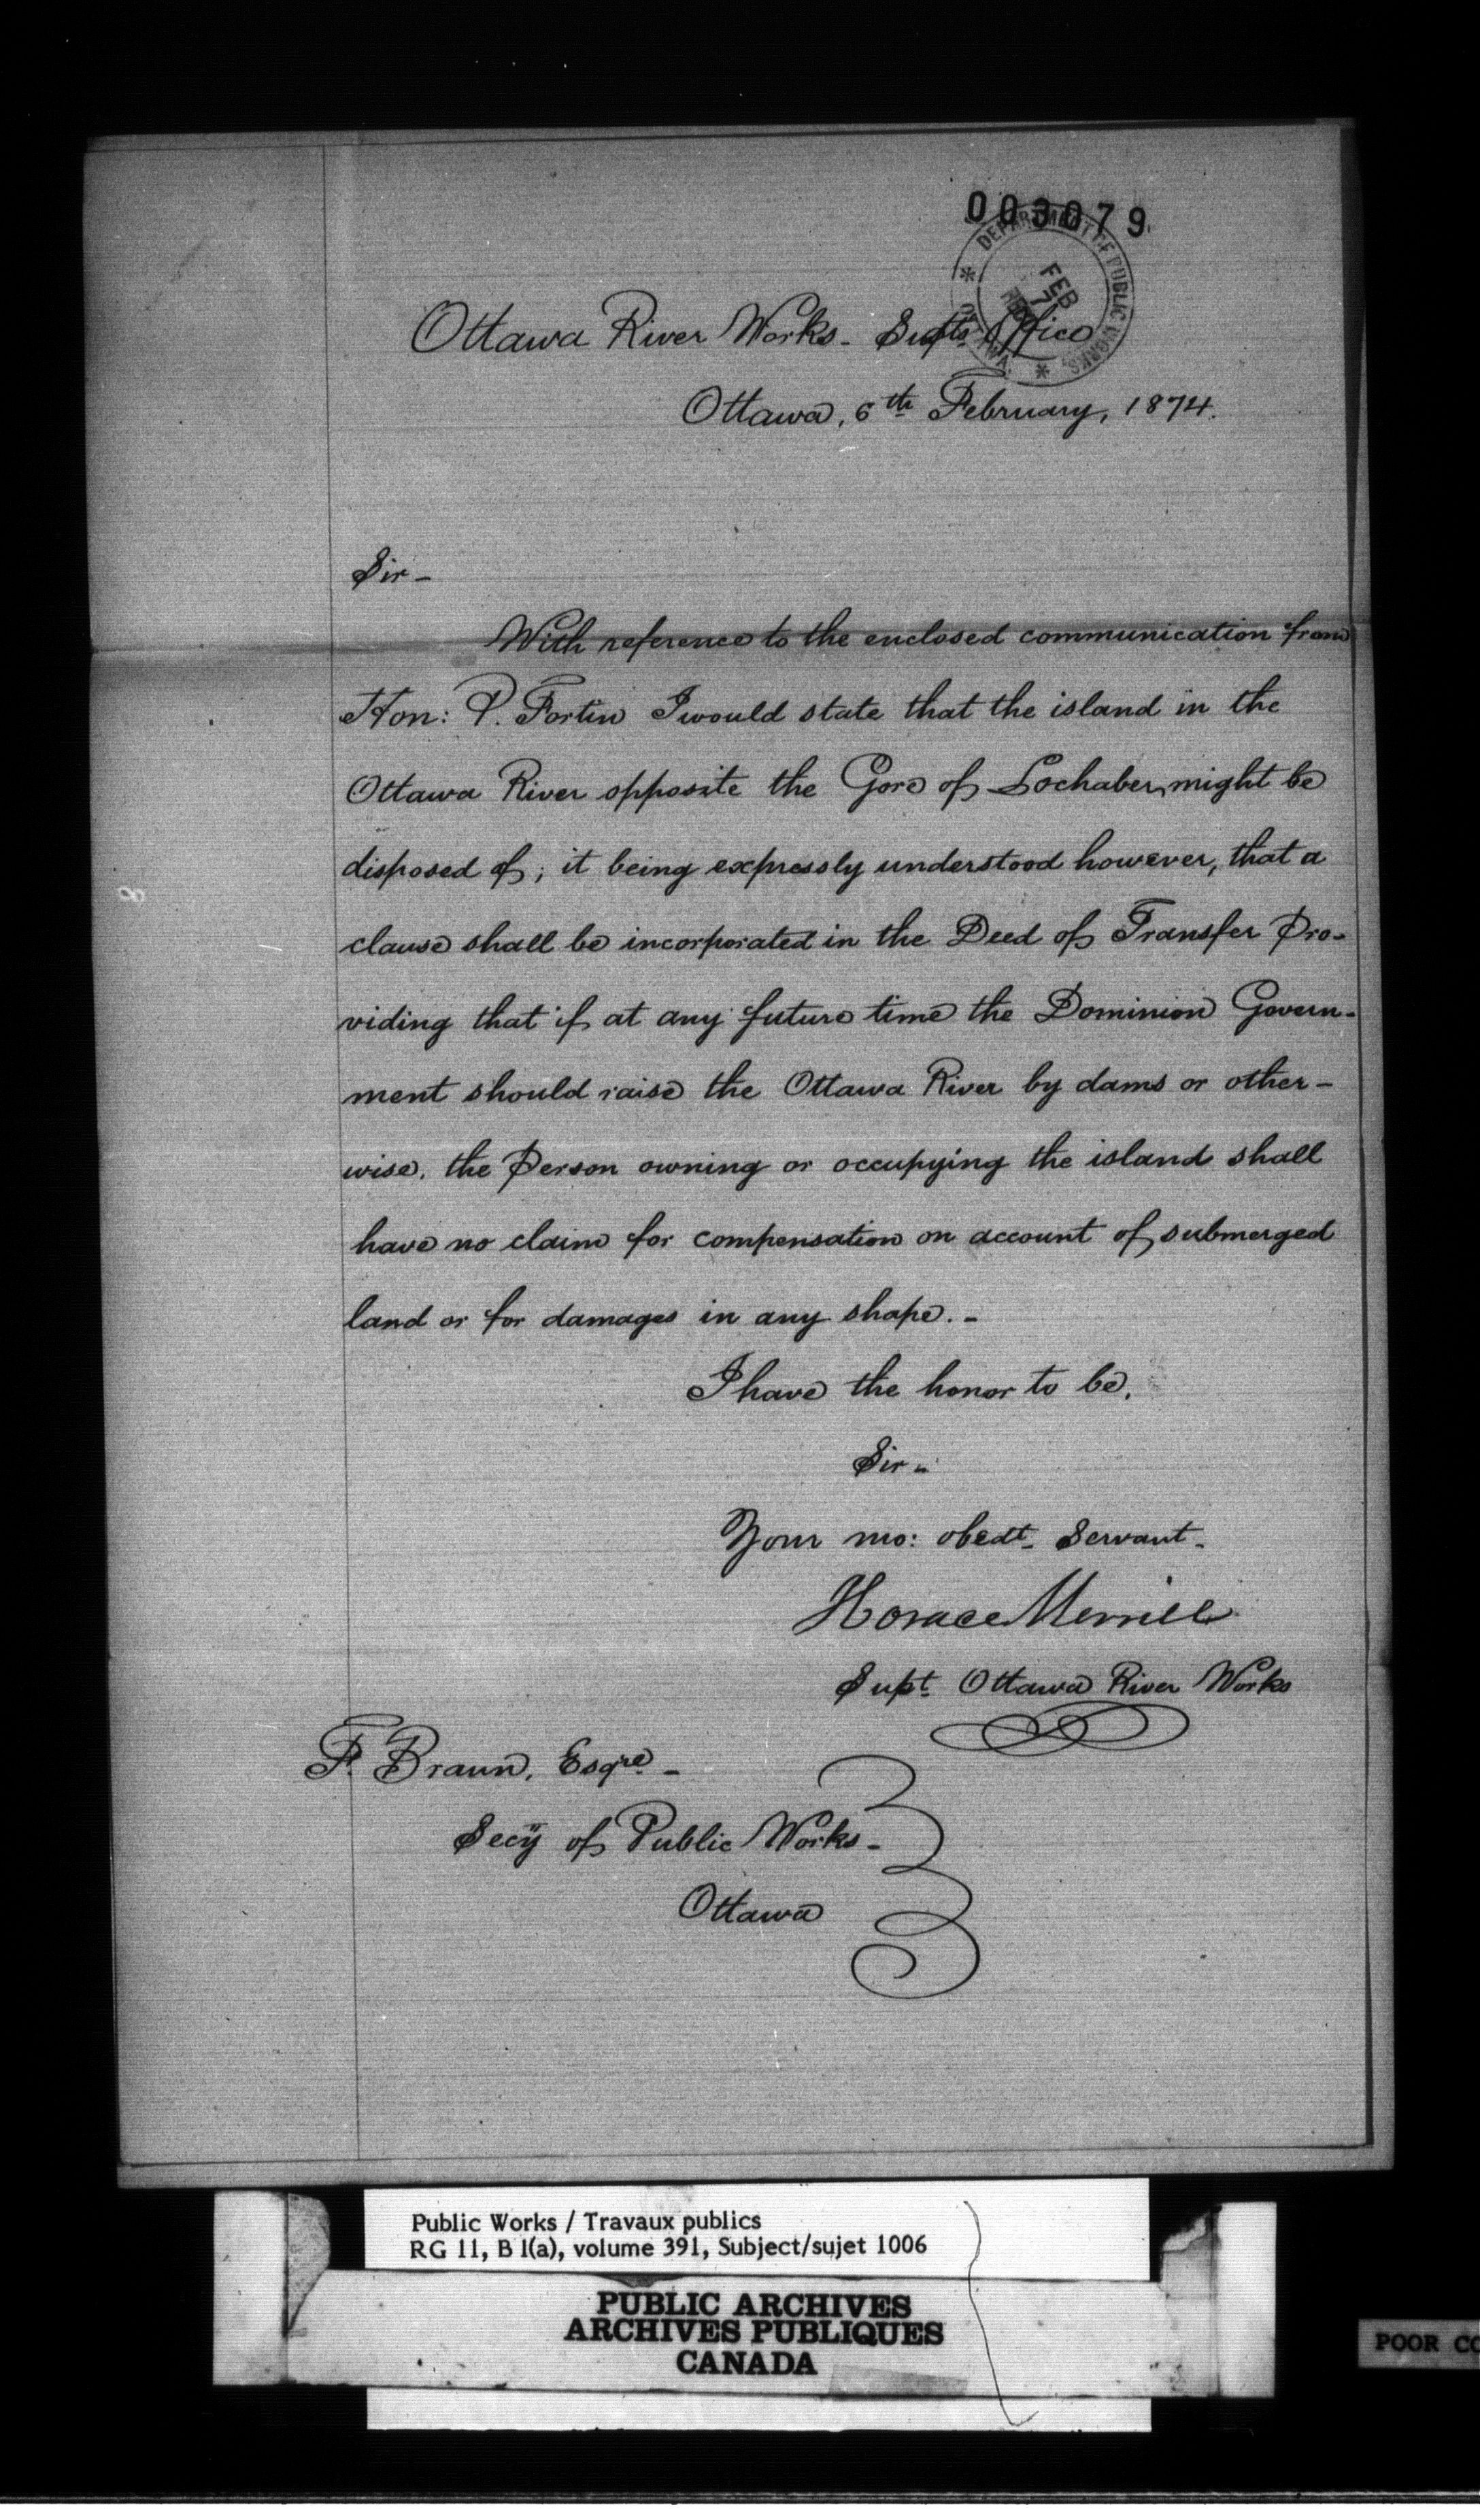 003079
DEPARTMENT OF PUBLIC WORKS.
FEB
7
OTTAWA
Ottawa River Works - Supts. Office
Ottawa, 6th February, 1874.
Sir -
With reference to the enclosed communication from
Hon: P. Fortin I would state that the island in the
Ottawa River opposite the Gore of Lochaber, might be
disposed of; it being expressly understood however, that a
clause shall be incorporated in the Deed of Transfer Pro-
viding that if at any future time the Dominion Govern-
ment should raise the Ottawa River by dams or other-
wise, the Person owning or occupying the island shall
have no claim for compensation on account of submerged
land or for damages in any shape. -
I have the honor to be,
Sir -
Your mo: obedt. Servant -
Horace Merrill
Supt. Ottawa River Works
F. Braun, Esqre. -
Secÿ of Public Works -
Ottawa
8
Public Works / Travaux publics
RG 11, B 1(a), volume 391, Subject/sujet 1006
PUBLIC ARCHIVES
ARCHIVES PUBLIQUES
CANADA
POOR CO